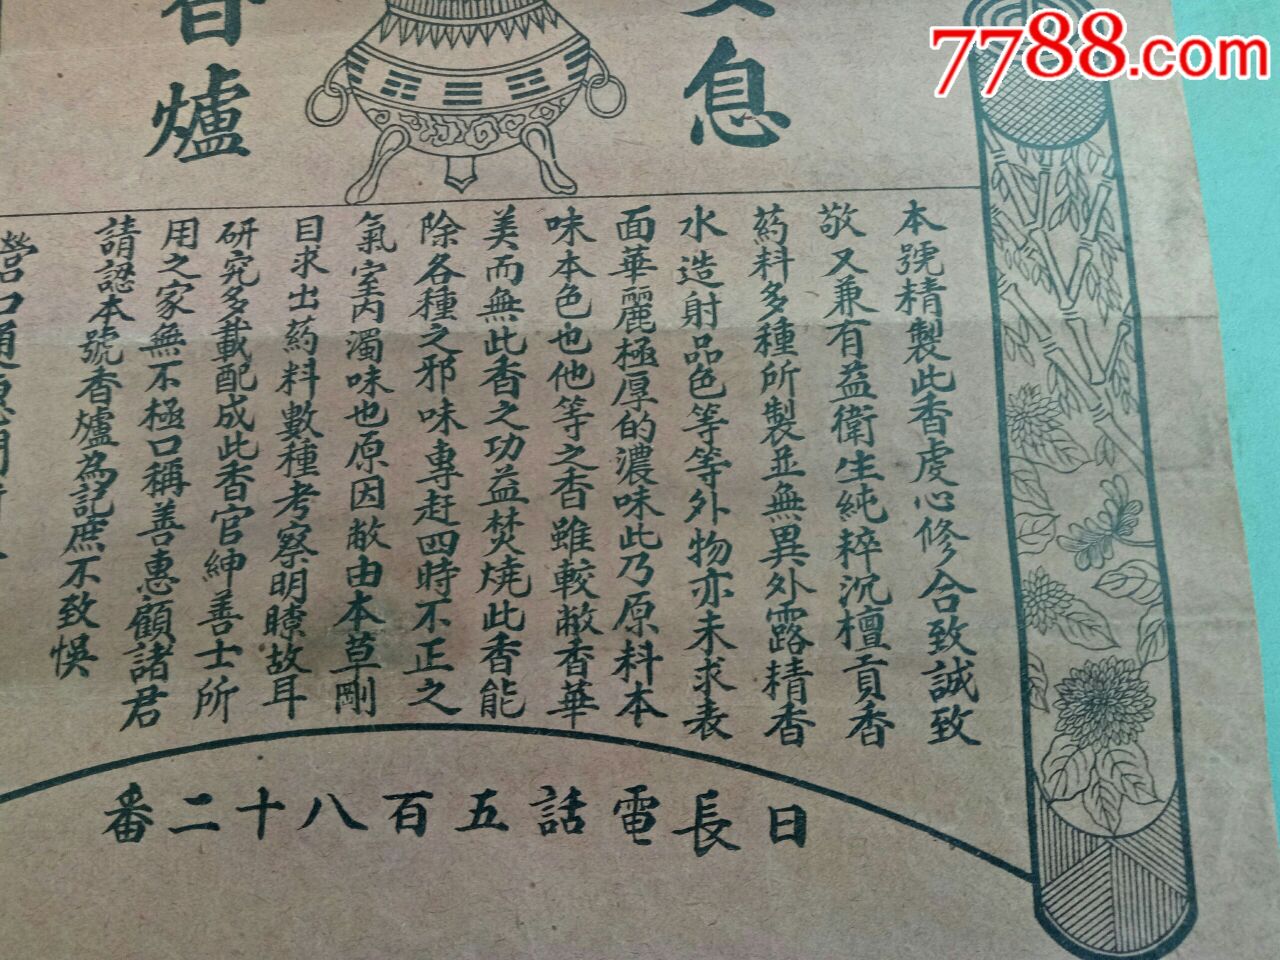 7788.com
息
香爐
本號精製此香虔心修合致誠致
敬又兼有益衛生純粹沉檀貢香
葯料多種所製並無異外露精香
水造射品色等等外物亦未求表
面華麗極厚的濃味此乃原料本
味本色也他等之香雖較敝香華
美而無此香之功益焚燒此香能
除各種之邪味專赶四時不正之
氣室內濁味也原因敝由本草剛
目求出葯料數種考察明瞭故耳
研究多載配成此香官紳善士所
用之家無不極口稱善惠顧諸君
請認本號香爐為記庶不致悞
營口
日長電話五百八十二番